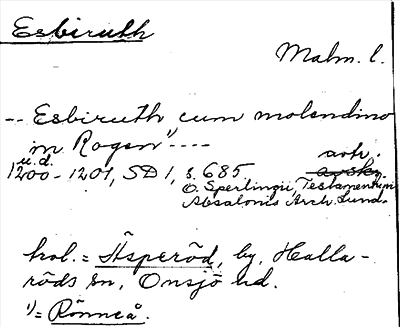 Esbiruth
Malm. l.
-- Esbiruth cum molendino
in Rogen 1) ----
u.d. avtr.
1200-1201, SD 1, s. 685. avskr.
O. Sperlingii, Testamentum
Absalonis Arch. Lund.
hol. = Äsperöd, by, Halla-
röds sn, Onsjö hd.
1) = Rönneå.